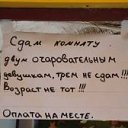 Сдам комнату
двум очаровательным
девушкам, трем не сдам!!!
Возраст не тот!!!
Оплата на месте.